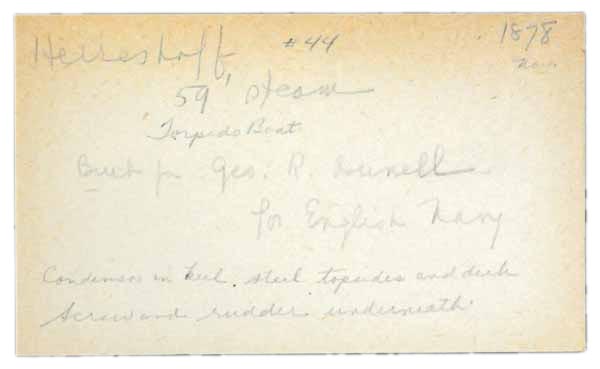 Herreshoff #44 1878
Nov.
59' steam
Torpedo Boat
Built for Geo. R. Dunell
for English Navy
Condensor in keel. steel topsides and deck
Screw and rudder underneath.